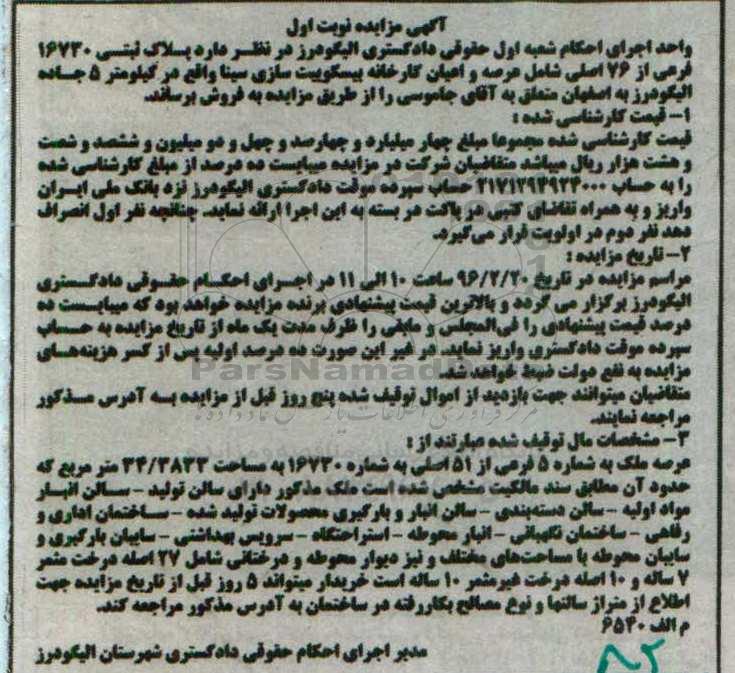 آگهی مزایده نوبت اول
واحد اجرای احکام شعبه اول حقوقی دادگستری الیگودرز در نظر دارد پلاک ثبتی ۱۶۷۳۰
فرعی از ۷۶ اصلی شامل عرصه و اعیان کارخانه بیسکوییت سازی سینا واقع در کیلومتر ۵ جاده
الیگودرز به اصفهان متعلق به آقای جاموسی را از طریق مزایده به فروش برساند.
۱- قیمت کارشناسی شده :
قیمت کارشناسی شده مجموعا مبلغ چهار میلیارد و چهارصد و چهل و دو میلیون و ششصد و شصت
و هشت هزار ریال میباشد متقاضیان شرکت در مزایده میبایست ده درصد از مبلغ کارشناسی شده
را به حساب ۲۱۷۱۲۹۴۹۲۴۰۰۰ حساب سپرده موقت دادگستری الیگودرز نزد بانک ملی ایران
واریز و به همراه تقاضای کتبی در پاکت در بسته به این اجرا ارائه نماید. چنانچه نفر اول انصراف
دهد نفر دوم در اولویت قرار می‌گیرد.
۲- تاریخ مزایده :
مراسم مزایده در تاریخ ۹۶/۲/۲۰ ساعت ۱۰ الی ۱۱ در اجرای احکام حقوقی دادگستری
الیگودرز برگزار می گردد و بالاترین قیمت پیشنهادی برنده مزایده خواهد بود که میبایست ده
درصد قیمت پیشنهادی را فی‌المجلس و مابقی را ظرف مدت یک ماه از تاریخ مزایده به حساب
سپرده موقت دادگستری واریز نماید. در غیر این صورت ده درصد اولیه پس از کسر هزینه‌های
مزایده به نفع دولت ضبط خواهد شد.
متقاضیان میتوانند جهت بازدید از اموال توقیف شده پنج روز قبل از مزایده به آدرس مذکور
مراجعه نمایند.
۳- مشخصات مال توقیف شده عبارتند از :
عرصه ملک به شماره ۵ فرعی از ۵۱ اصلی به شماره ۱۶۷۳۰ به مساحت ۳۴/۳۸۳۳ متر مربع که
حدود آن مطابق سند مالکیت مشخص شده است ملک مذکور دارای سالن تولید - سالن انبار
مواد اولیه - سالن دسته‌بندی - سالن انبار و بارگیری محصولات تولید شده - ساختمان اداری و
رفاهی - ساختمان نگهبانی - انبار محوطه - استراحتگاه - سرویس بهداشتی - سایبان بارگیری و
سایبان محوطه با مساحت‌های مختلف و نیز دیوار محوطه و درختانی شامل ۲۷ اصله درخت مثمر
۷ ساله و ۱۰ اصله درخت غیرمثمر ۱۰ ساله است خریدار میتواند ۵ روز قبل از تاریخ مزایده جهت
اطلاع از متراژ سالنها و نوع مصالح بکاررفته در ساختمان به آدرس مذکور مراجعه کند.
م الف ۶۵۴۰
مدیر اجرای احکام حقوقی دادگستری شهرستان الیگودرز
ParsNamad